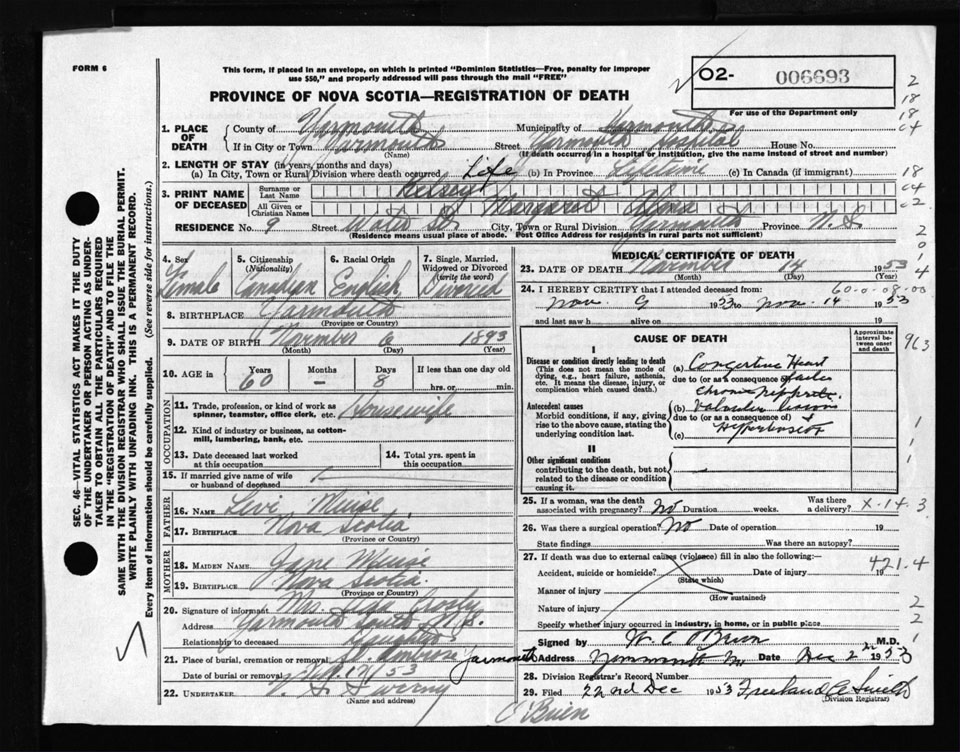 FORM 6
This form, if placed in an envelope, on which is printed "Dominion Statistics—Free, penalty for improper
use $50," and properly addressed will pass through the mail "FREE"
O2- 006693
For use of the Department only
PROVINCE OF NOVA SCOTIA—REGISTRATION OF DEATH
1. PLACE OF DEATH
County of Yarmouth Municipality of Yarmouth
If in City or Town Yarmouth Street Yarmouth Hospital House No.
(Name) (If death occurred in a hospital or institution, give the name instead of street and number)
2. LENGTH OF STAY (in years, months and days)
(a) In City, Town or Rural Division where death occurred Life (b) In Province Lifetime (c) In Canada (if immigrant)
3. PRINT NAME OF DECEASED
Surname or Last Name Kelsey
All Given or Christian Names Margaret
RESIDENCE No. 9 Street Water St. City, Town or Rural Division Yarmouth Province N.S.
(Residence means usual place of abode. Post Office Address for residents in rural parts not sufficient)
4. Sex Female
5. Citizenship (Nationality) Canadian
6. Racial Origin English
7. Single, Married, Widowed or Divorced (write the word)
8. BIRTHPLACE Yarmouth
(Province or Country)
9. DATE OF BIRTH November 6 1893
(Month) (Day) (Year)
10. AGE in Years 60 Months – Days 8 If less than one day old
hrs. or min.
OCCUPATION
11. Trade, profession, or kind of work as spinner, teamster, office clerk, etc. Housewife
12. Kind of industry or business, as cotton-mill, lumbering, bank, etc.
13. Date deceased last worked at this occupation
14. Total yrs. spent in this occupation
15. If married give name of wife or husband of deceased
FATHER
16. NAME Levi Muise
17. BIRTHPLACE Nova Scotia
(Province or Country)
MOTHER
18. MAIDEN NAME Jane Muise
19. BIRTHPLACE Nova Scotia
(Province or Country)
20. Signature of informant Mrs. Crosby
Address Yarmouth South N.S.
Relationship to deceased Daughter
21. Place of burial, cremation or removal St. Ambrose Yarmouth
Date of burial or removal Nov. 17/53
22. UNDERTAKER V. S. Sweeny
(Name and address)
MEDICAL CERTIFICATE OF DEATH
23. DATE OF DEATH November 14 1953
(Month) (Day) (Year)
60-0-08-00
24. I HEREBY CERTIFY that I attended deceased from:
Nov. 9 1953 to Nov. 14 1953
and last saw h alive on 19
CAUSE OF DEATH
Approximate interval between onset and death
I
Disease or condition directly leading to death
(This does not mean the mode of dying, e.g., heart failure, asthenia, etc. It means the disease, injury, or complication which caused death.)
(a) Congestive Heart
due to (or as a consequence of) Failure
Antecedent causes
Morbid conditions, if any, giving rise to the above cause, stating the underlying condition last.
Chronic
(b) Valvular
due to (or as a consequence of)
(c)
II
Other significant conditions
contributing to the death, but not related to the disease or condition causing it.
25. If a woman, was the death associated with pregnancy? No Duration weeks. Was there a delivery? X-14
26. Was there a surgical operation? No Date of operation 19
State findings Was there an autopsy?
27. If death was due to external causes (violence) fill in also the following:
Accident, suicide or homicide? Date of injury 19
(State which)
421.4
Manner of injury
(How sustained)
Nature of injury
Specify whether injury occurred in industry, in home, or in public place
Signed by W. C. O'Brien M.D.
Address Date Dec 2nd 1953
28. Division Registrar's Record Number
29. Filed 22nd Dec 1953 Freeland A Smith
(Division Registrar)
O'Brien
SEC. 46—VITAL STATISTICS ACT MAKES IT THE DUTY
OF THE UNDERTAKER OR PERSON ACTING AS UNDER-
TAKER TO OBTAIN ALL THE PARTICULARS REQUIRED
IN THE "REGISTRATION OF DEATH" AND TO FILE THE
SAME WITH THE DIVISION REGISTRAR WHO SHALL ISSUE THE BURIAL PERMIT.
WRITE PLAINLY WITH UNFADING INK. THIS IS A PERMANENT RECORD.
Every item of information should be carefully supplied. (See reverse side for instructions.)
2
18
18
c4
18
c4
c2
2
0
1
4
963
1
1
1
3
2
2
1